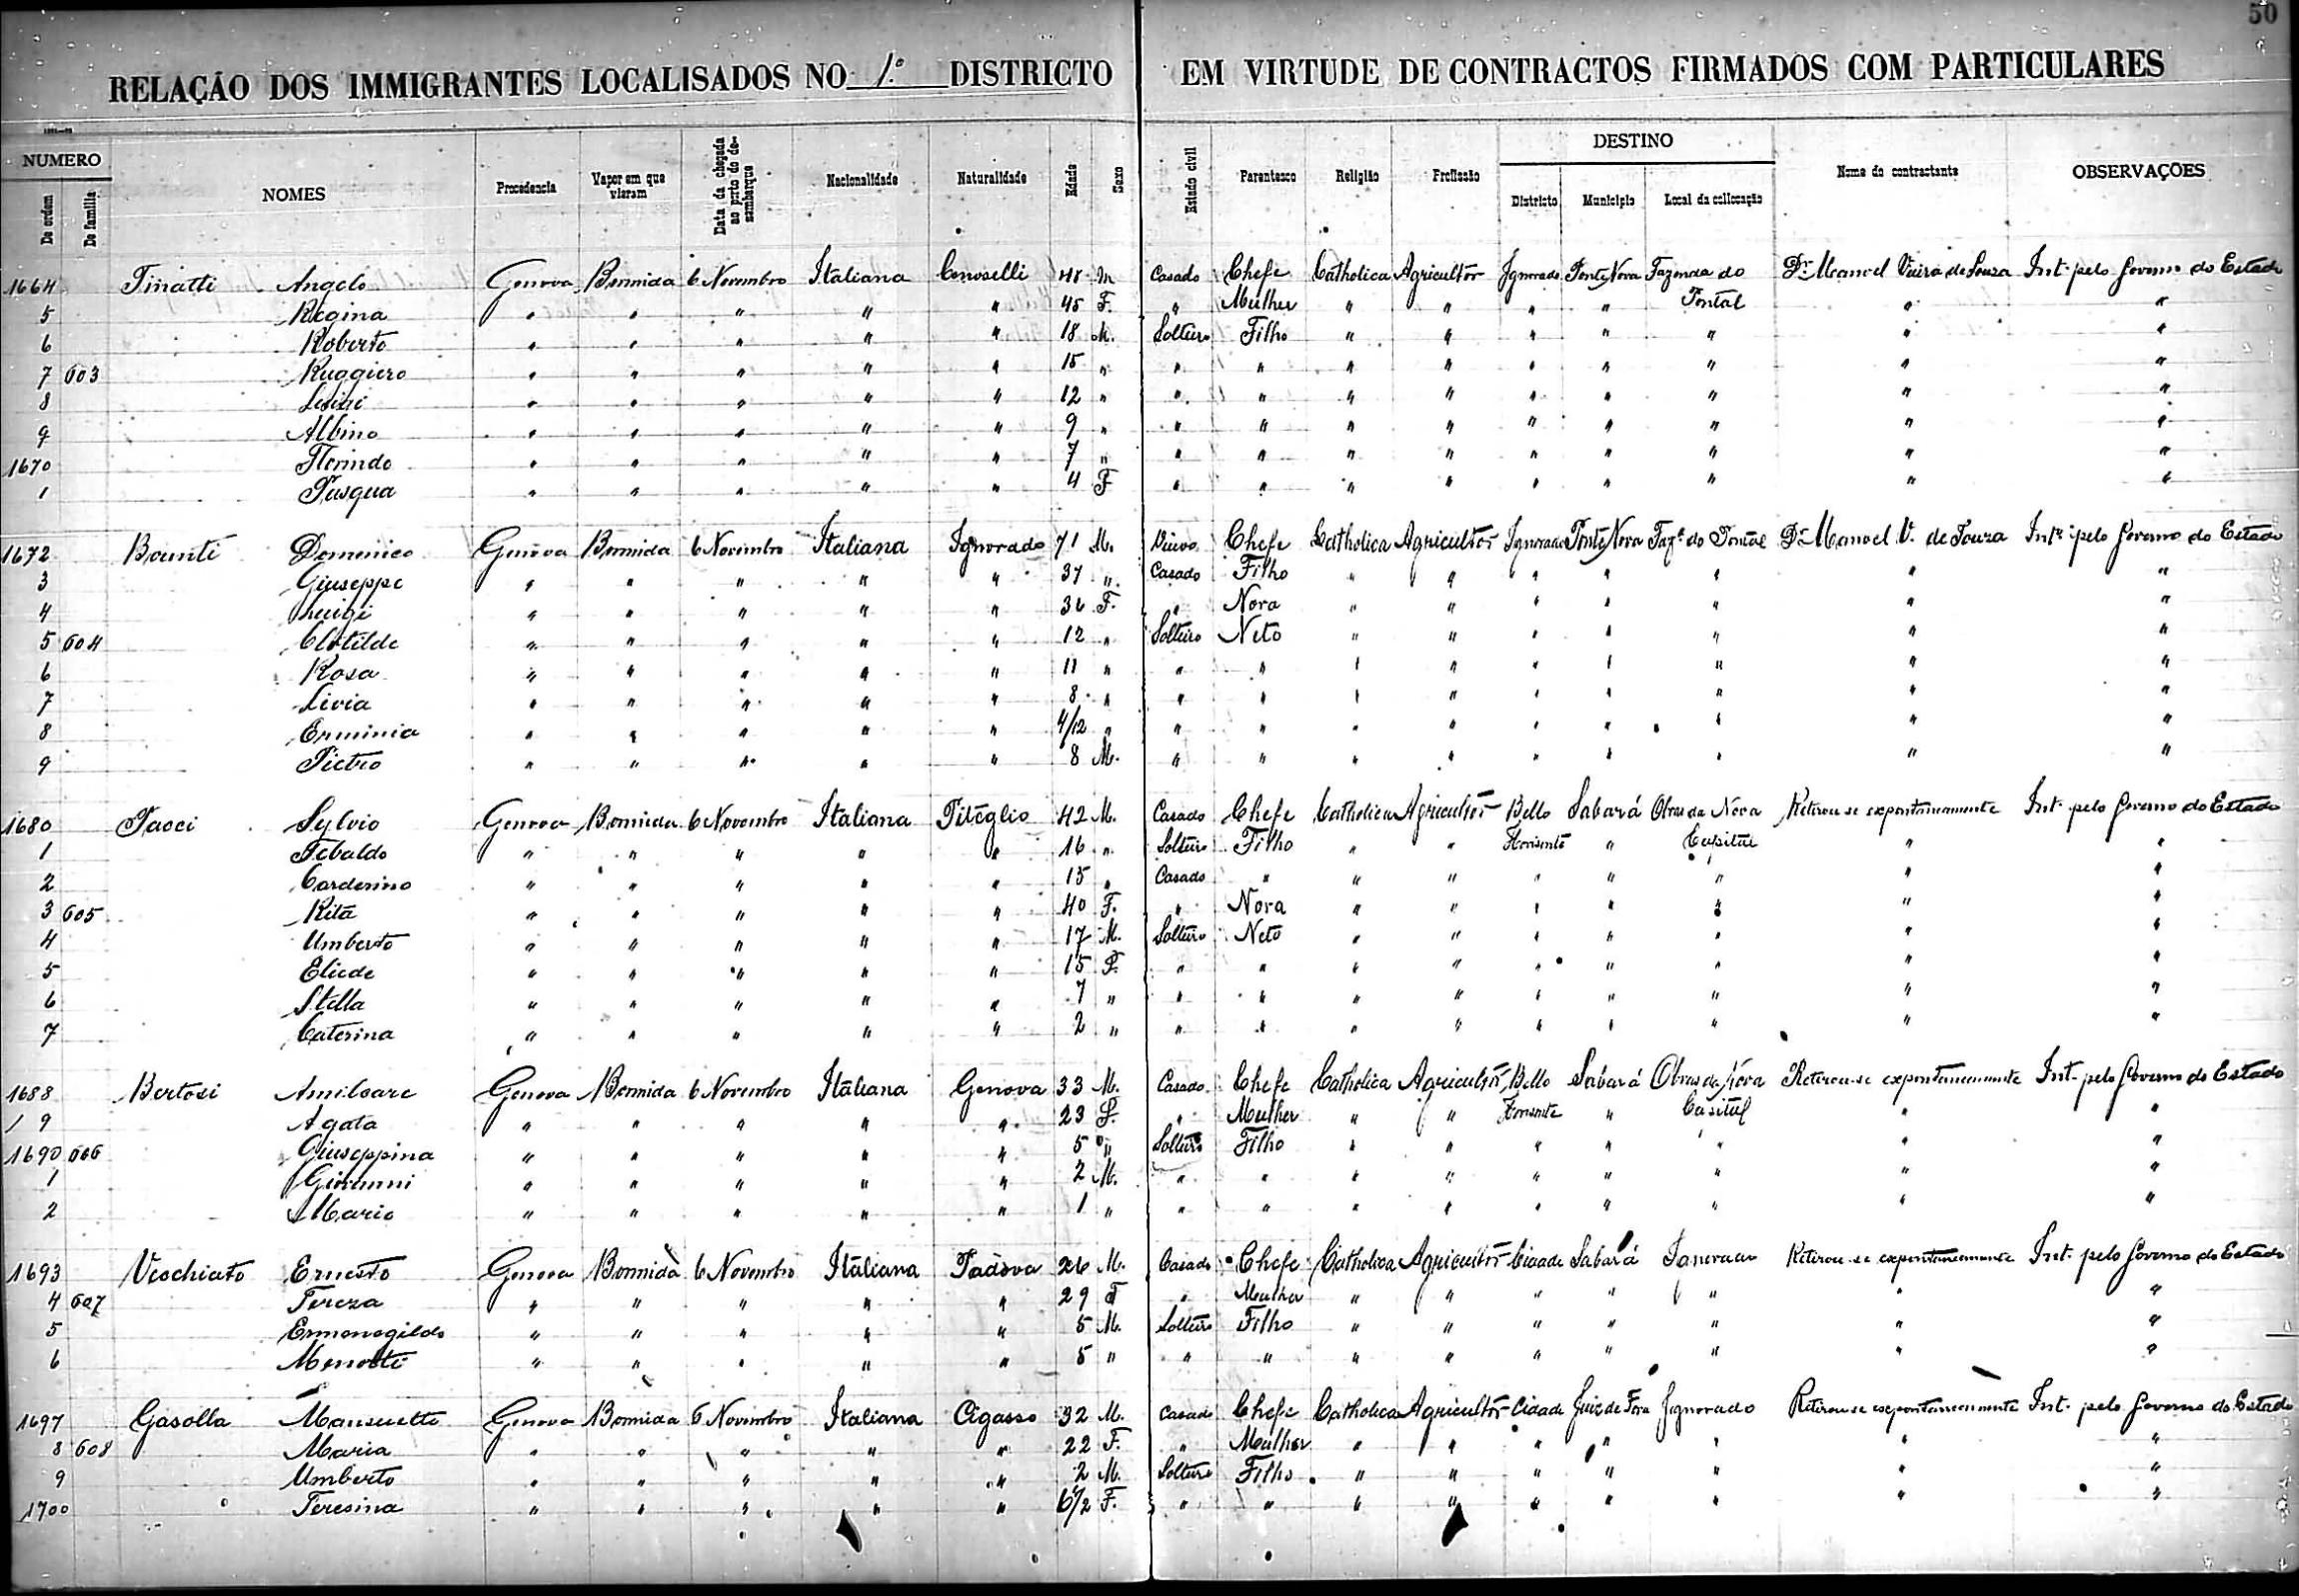 50
RELAÇÃO DOS IMMIGRANTES LOCALISADOS NO 1.º DISTRICTO EM VIRTUDE DE CONTRACTOS FIRMADOS COM PARTICULARES
NUMERO DESTINO
De ordem De familia NOMES Procedencia Vapor em que vieram Data da chegada ao porto do desembarque Nacionalidade Naturalidade Edade Sexo Estado civil Parentesco Religião Profissão Districto Municipio Local da collocação Nome do contractante OBSERVAÇÕES
1664 Tinatti Angelo Genova Bormida 6 Novembro Italiana 48 M Casado Chefe Catholica Agricultor Ignorado Ponte Nova Fazenda do Dr. Manoel Vieira de Souza Int. pelo Governo do Estado
5 Regina " " " " " 45 F. " Mulher " " " " Pontal " "
6 Roberto " " " " " 18 M. Solteiro Filho " " " " " " "
7 603 Ruggiero " " " " " 15 " " " " " " " " " "
8 Luigi " " " " " 12 " " " " " " " " " "
9 Albino " " " " " 9 " " " " " " " " " "
1670 Florindo " " " " " 7 " " " " " " " " " "
1 Pasqua " " " " " 4 F " " " " " " " " "
1672 Bounti Domenico Genova Bormida 6 Novembro Italiana Ignorado 71 M. Viuvo Chefe Catholica Agricultor Ignorado Ponte Nova Fazª do Pontal Dr Manoel V. de Souza Intr pelo Governo do Estado
3 Giuseppe " " " " " 37 " Casado Filho " " " " " " "
4 Luigi " " " " " 36 F. " Nora " " " " " " "
5 604 Clotilde " " " " " 12 " Solteiro Neto " " " " " " "
6 Rosa " " " " " 11 " " " " " " " " " "
7 Livia " " " " " 8 " " " " " " " " " "
8 Erminia " " " " " 4/12 " " " " " " " " " "
9 Pietro " " " " " 8 M. " " " " " " " " "
1680 Paoci Sylvio Genova Bormida 6 Novembro Italiana Pitéglio 42 M. Casado Chefe Catholica Agricultor Bello Sabará Obras da Nova Retirou-se expontaneamente Int. pelo Governo do Estado
1 Tebaldo " " " " " 16 " Solteiro Filho " " Horisonte " Capital " "
2 Carderino " " " " " 15 " Casado " " " " " " " "
3 605 Rita " " " " " 40 F. " Nora " " " " " " "
4 Umberto " " " " " 17 M. Solteiro Neto " " " " " " "
5 Eliede " " " " " 15 F. " " " " " " " " "
6 Stella " " " " " 7 " " " " " " " " " "
7 Caterina " " " " " 2 " " " " " " " " " "
1688 Bertosi Amilcare Genova Bormida 6 Novembro Italiana Genova 33 M. Casado Chefe Catholica Agricultor Bello Sabará Obras da Nova Retirou-se expontaneamente Int. pelo Governo do Estado
9 Agata " " " " " 23 F. " Mulher " " Horisonte " Capital " "
1690 606 Giuseppina " " " " " 5 " Solteiro Filho " " " " " " "
1 Giovanni " " " " " 2 M. " " " " " " " " "
2 Mario " " " " " 1 " " " " " " " " " "
1693 Veschiato Ernesto Genova Bormida 6 Novembro Italiana Padova 26 M. Casado Chefe Catholica Agricultor Cidade Sabará Ignorado Retirou-se expontaneamente Int. pelo Governo do Estado
4 607 Tereza " " " " " 29 F " Mulher " " " " " " "
5 Ermenegildo " " " " " 5 M. Solteiro Filho " " " " " " "
6 Menotti " " " " " 5 " " " " " " " " " "
1697 Gasolla Mansuetto Genova Bormida 6 Novembro Italiana Cigasso 32 M. Casado Chefe Catholica Agricultor Cidade Juiz de Fora Ignorado Retirou-se expontaneamente Int. pelo Governo do Estado
8 608 Maria " " " " " 22 F. " Mulher " " " " " " "
9 Umberto " " " " " 2 M. Solteiro Filho " " " " " " "
1700 Teresina " " " " " F. " " " " " " " " "